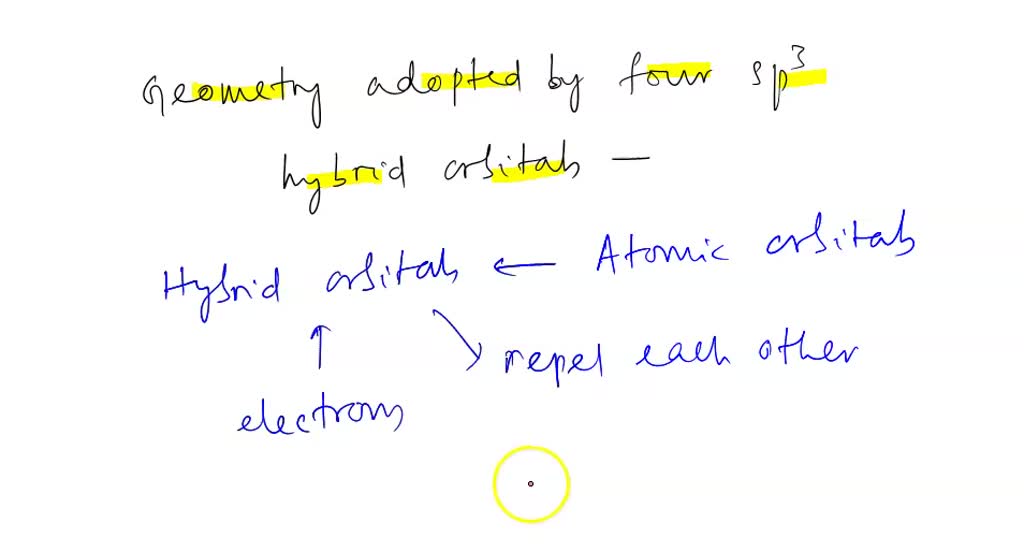 Geometry adopted by four sp³
hybrid orbitals —
Hybrid orbitals ← Atomic orbitals
↑ ↘ repel each other
electrons